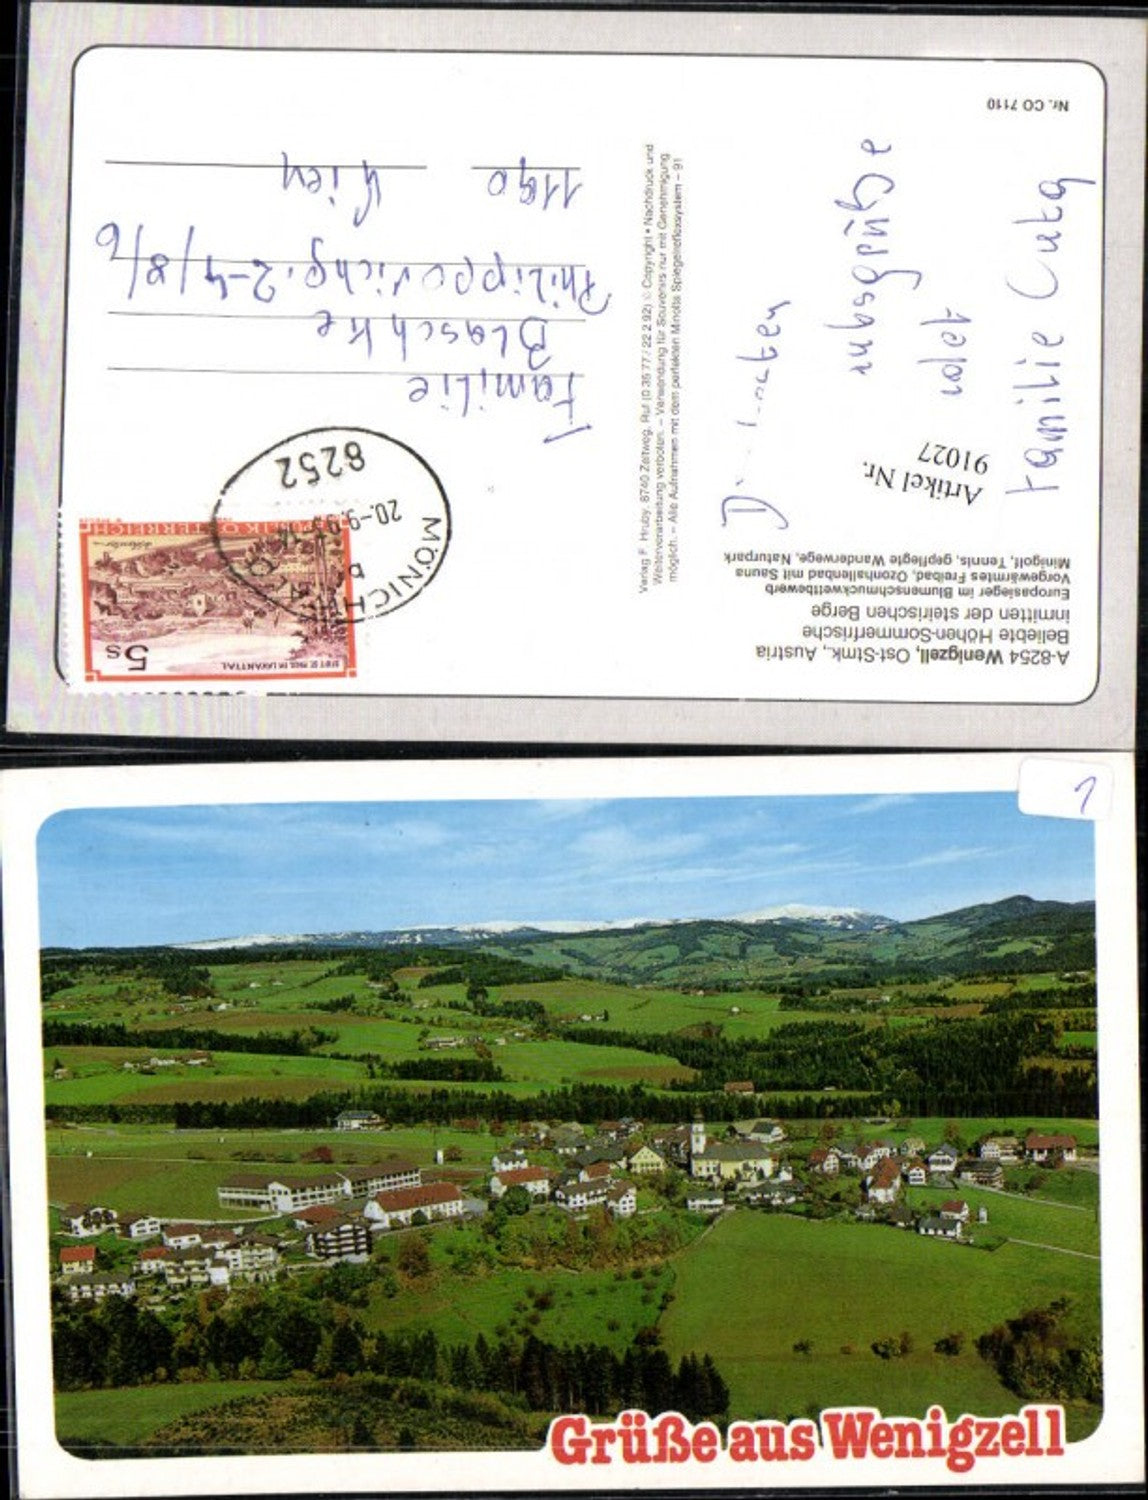 A-8254 Wenigzell, Ost-Stmk., Austria
Beliebte Höhen-Sommerfrische
inmitten der steirischen Berge
Europasieger im Blumenschmuckwettbewerb
Vorgewärmtes Freibad, Ozonhallenbad mit Sauna
Minigolf, Tennis, gepflegte Wanderwege, Naturpark
Artikel Nr.
91027
Urlaubsgrüße
Familie
Nr. CO 7110
Verlag F. Hruby, 8740 Zeltweg, Ruf (0 35 77 / 22 2 92) © Copyright • Nachdruck und
Weiterverarbeitung verboten. – Verwendung für Souvenirs nur mit Genehmigung
möglich. – Alle Aufnahmen mit dem perfekten Minolta Spiegelreflexsystem – 91
STIFT ST. PAUL IM LAVANTTAL
5s
REPUBLIK ÖSTERREICH
8252
20.-9.9
MÖNICH
Familie
Blaschke
Philippovichg. 2-4/8/6
1190 Wien
1
Grüße aus Wenigzell